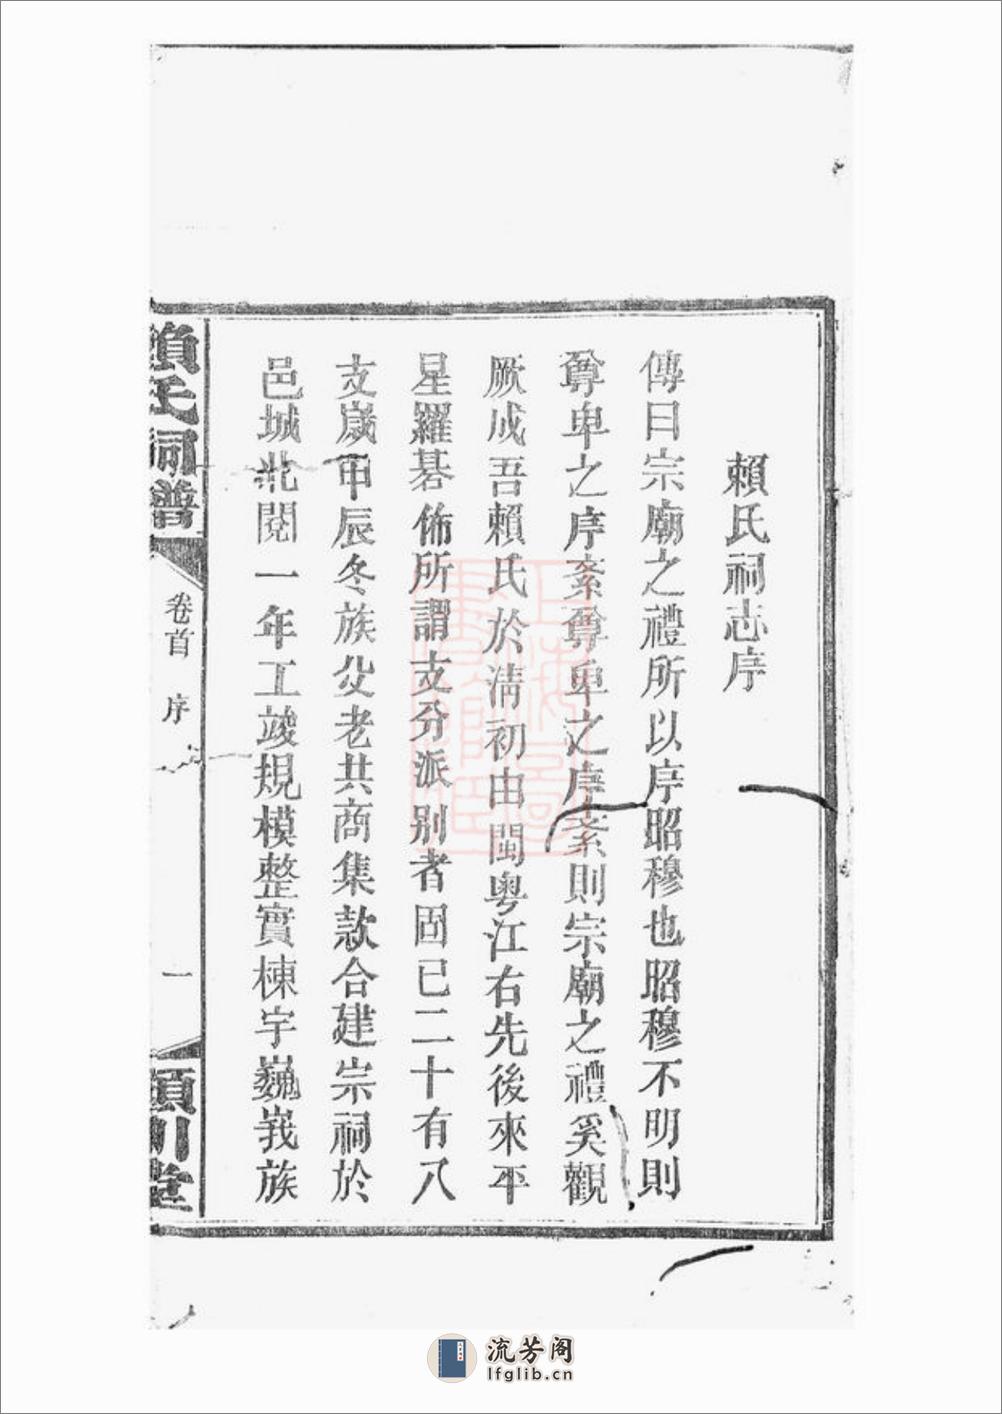 賴氏祠志序
傳曰宗廟之禮所以序昭穆也昭穆不明則
尊卑之序紊尊卑之序紊則宗廟之禮奚觀
厥成吾賴氏於清初由閩粵江右先後來平
星羅碁佈所謂支分派别者固已二十有八
支歲甲辰冬族父老共商集款合建宗祠於
邑城北閱一年工竣規模整實棟宇巍峩族
賴氏祠譜
卷首 序
一
潁川堂
流芳阁
lfglib.cn